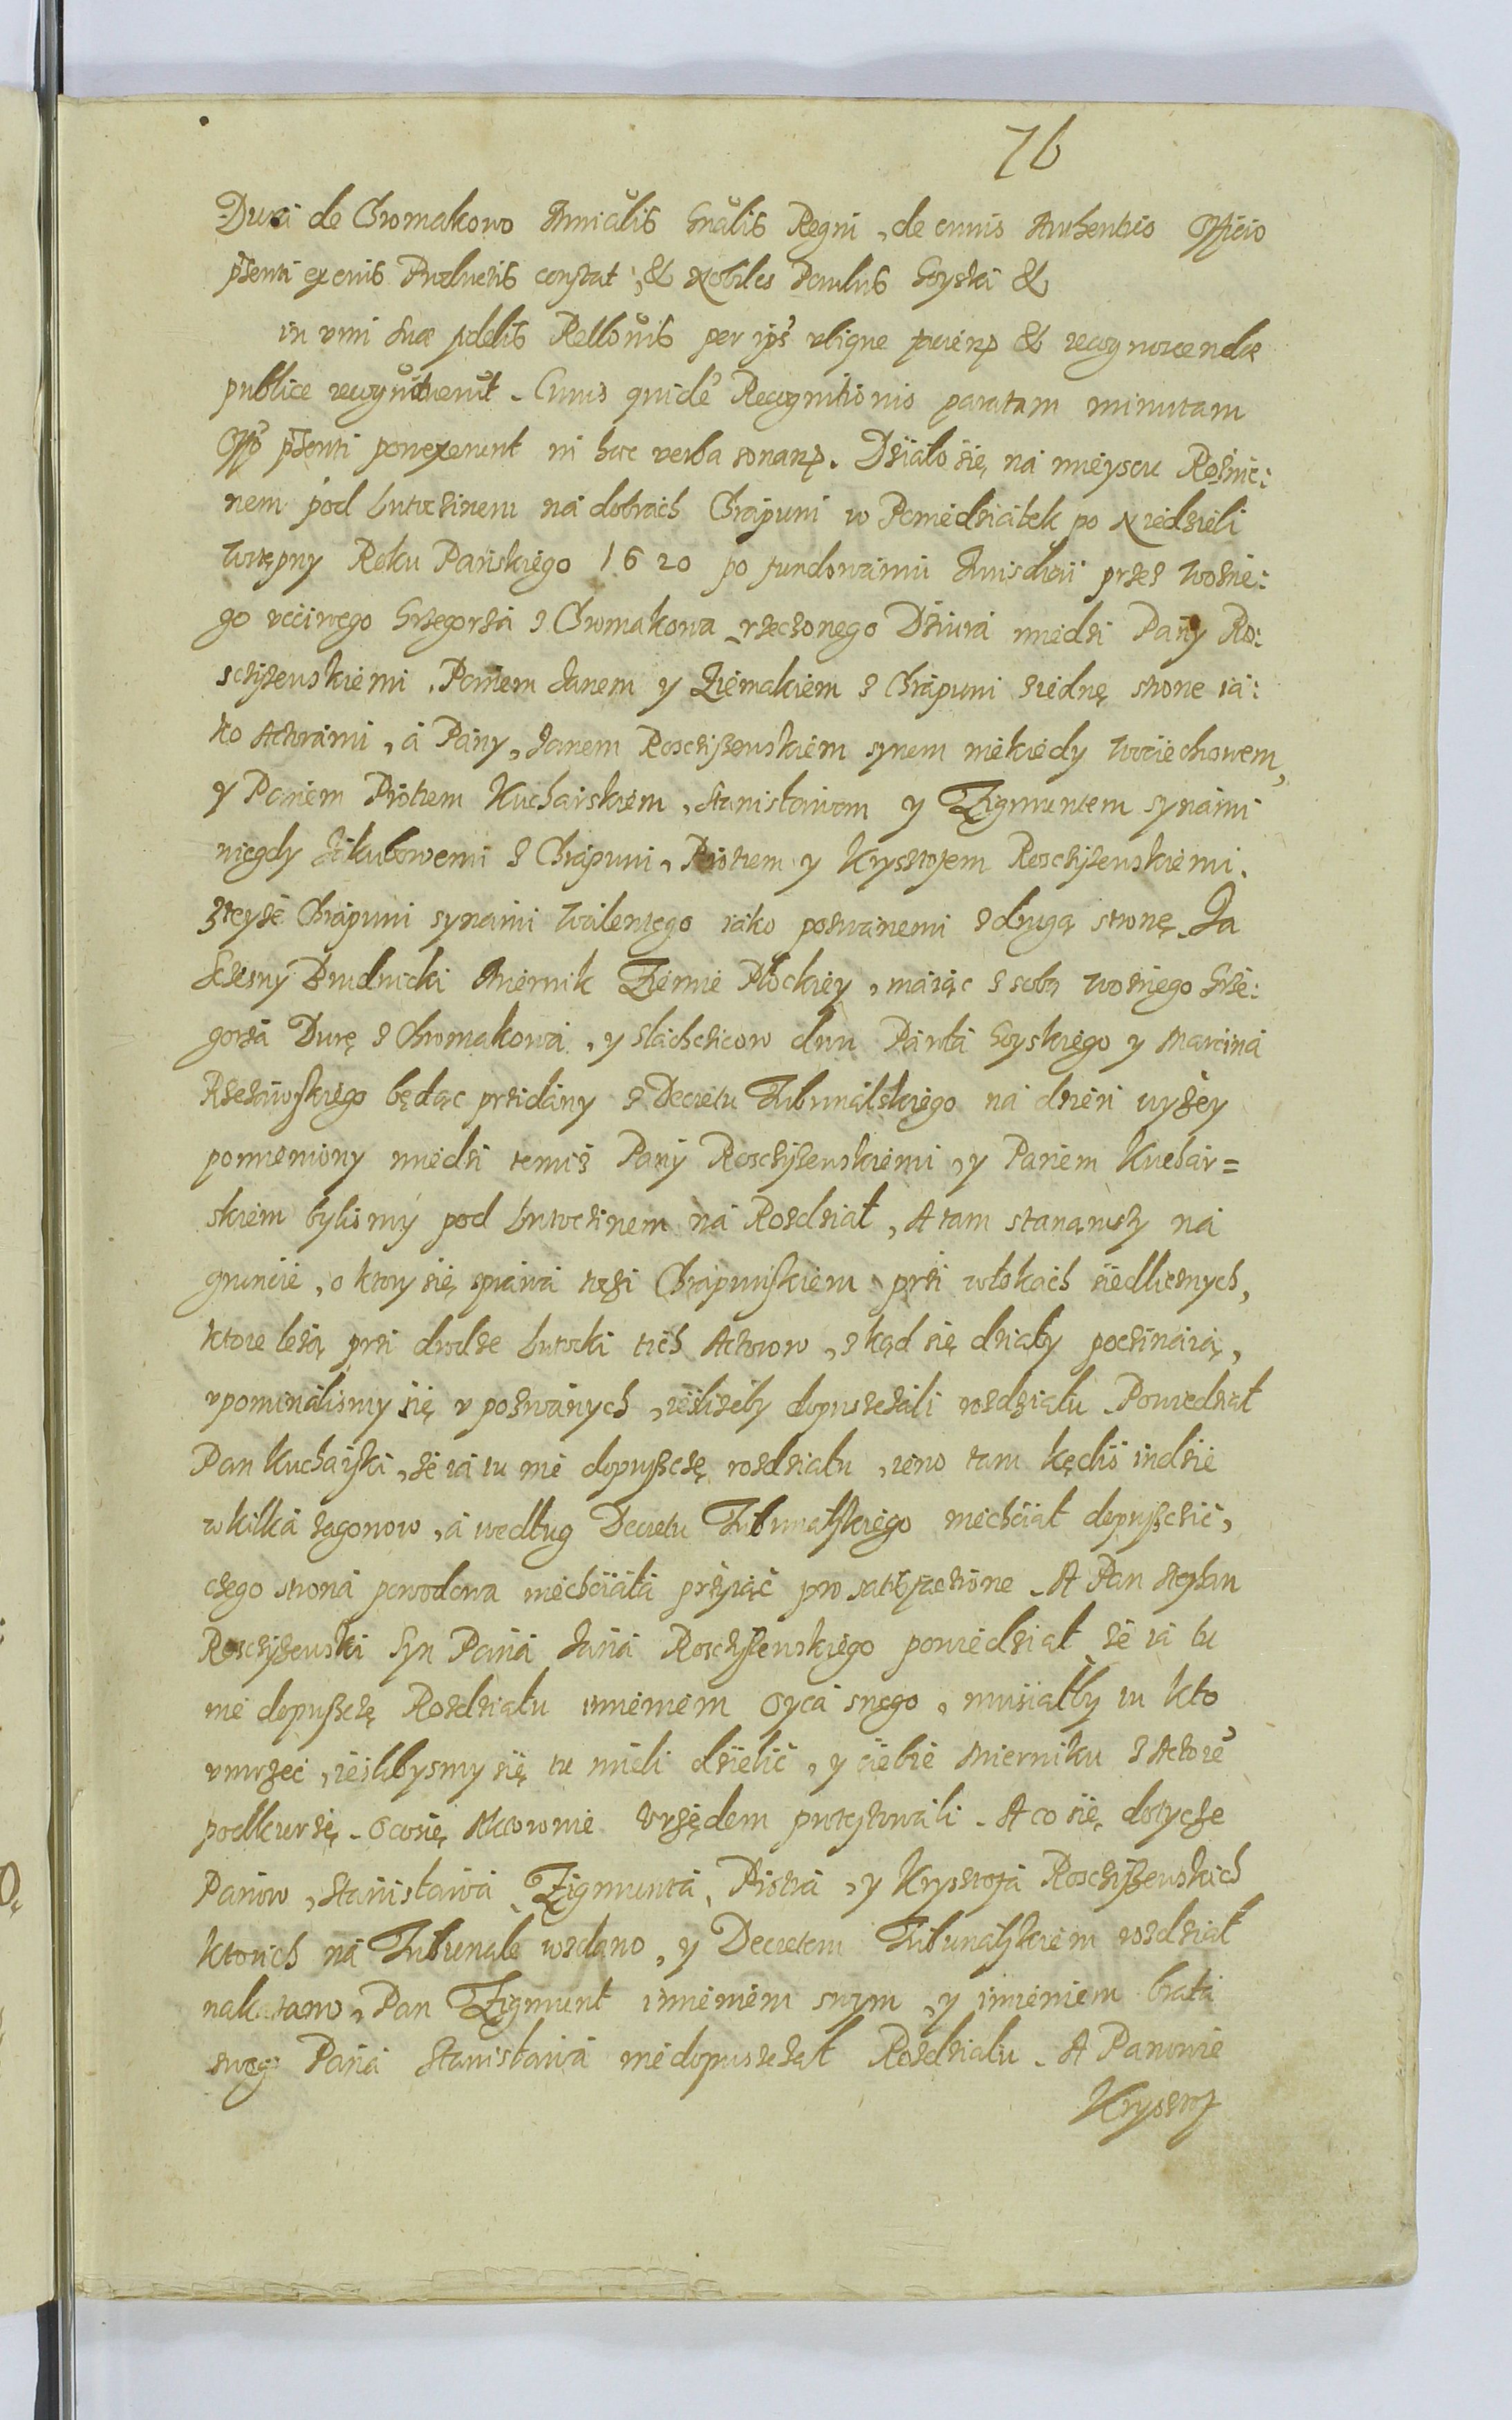 76
Dura de Chromakowo Mnialis Gnalis Regni, de cuius Authentico Officio
pñsenti ex enis Productis constat, & Nobiles Paulus Gryski &
in vim suæ fidelis Rellonis per ips' vbique faciend & recognoscendæ
publice recognouerut. Cuius quide' Recognitionis paratam minutam
Offo pñsenti porrexerunt in hæc verba sonan. Działo się ná mieyscu Rożnic:
nem pod Lutoczinem ná dobrách Chrápuni w Poniedziáłek po Niedzieli
Wstępny Roku Páńskiego 1620 po fundowániu Iurisdicii przes Woźne:
go vcciwego Grzegorzá z Chromakowa rzeczonego Dziurá miedzi Pány Ro:
scziszewskiemi, Pánem Janem y Ziemakiem z Chrápuni z iednę strone iá:
ko Actorámi, á Pány, Janem Roscziszewskiem synem niekiedy Woiciechowem,
y Pánem Piotrem Kucharskiem, Stanisławem y Zigmuntem synámi
niegdy Jákubowemi z Chrápuni, Piotrem y Krysztofem Roscziszewskiemi.
z teyże Chrápuni synámi Wálentego iáko pozwánemi z drugą stronę. Ja
Sczesny Brudnicki Miernik Ziemie Płockiey, máiąc z sobą Woźnego Grze:
gorzá Durę z Chromakowá, y szláchcicow dwu Páwłá Gryskiego y Marciná
Rzeszáwskiego będąc przidány z Decretu Tribunálskiego ná dzień wyżey
pomieniony miedzi temiż Pány Roscziszewskiemi, y Pánem Kuchár=
skiem bylismy pod Lutoczinem ná Rozdział, A tam stanąwszy ná
gruncie, o ktory się spráwá toczi Chrápuńskiem przi włokách siedliсznych,
ktore leżą przi drodze Lutocki tich Actorow, skąd się działy poczináią,
vpominálismy się v pozwánych, iesliżeby dopusczáli rozdziału. Powiedział
Pan Kucharski, że iá tu nie dopuszczę rozdziału, ieno tam kędiś indzie
w kilká zagonow, á według Decretu Tribunálskiego niechciał dopuszczić,
czego stroná powodowa niechciáłá prziyiąć pro satisfactione. A Pan Stephan
Roscziszewski Syn Páná Janá Roscziszewskiego powiedział że iá tu
nie dopuszczę Rozdziału imieniem Oycá swego, musiáłby tu kto
vmrzeć, ieslibysmy się tu mieli dzielić, y ciebie Mierniku z Actore'
podkurzę. O co się Aktorowie Vrzędem protestowáli. A co się dotycze
Pánow, Stánisławá Zigmuntá, Piotrá, y Krysztofá Roscziszewskich
ktorich ná Tribunale wzdano, y Decretem Tribunálskiem rozdział
nakazano, Pan Zigmunt imieniem swym, y imieniem bratá
swego Páná Stanisławá nie dopuszczał Rozdziału. A Panowie
Krysztof